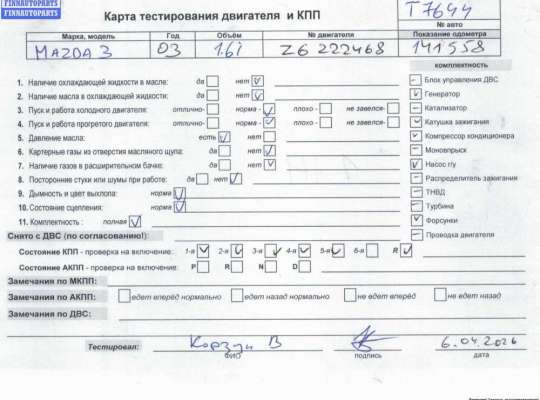 FINNAUTOPARTS
FINNAUTOPARTS
Карта тестирования двигателя и КПП
T7644
№ авто
Марка, модель Год Объём № двигателя Показание одометра
MAZDA 3 03 1.6i Z6 222468 141558
комплектность
1. Наличие охлаждающей жидкости в масле: да нет
2. Наличие масла в охлаждающей жидкости: да нет
3. Пуск и работа холодного двигателя: отлично- норма - плохо - не завелся-
4. Пуск и работа прогретого двигателя: отлично- норма - плохо - не завелся-
5. Давление масла: есть нет
6. Картерные газы из отверстия масляного щупа: да нет
7. Наличие газов в расширительном бачке: да нет
8. Посторонние стуки или шумы при работе: да нет
9. Дымность и цвет выхлопа: норма
10. Состояние сцепления: норма
11. Комплектность : полная
Блок управления ДВС
Генератор
Катализатор
Катушка зажигания
Компрессор кондиционера
Моновпрыск
Насос г/у
Распределитель зажигания
ТНВД
Турбина
Форсунки
Проводка двигателя
Снято с ДВС (по согласованию!):
Состояние КПП - проверка на включение: 1-я 2-я 3-я 4-я 5-я 6-я R
Состояние АКПП - проверка на включение: P R N D
Замечания по МКПП:
Замечания по АКПП: едет вперёд нормально едет назад нормально не едет вперёд не едет назад
Замечания по ДВС:
Тестировал: Корзун В 6.04.2026
ФИО подпись дата